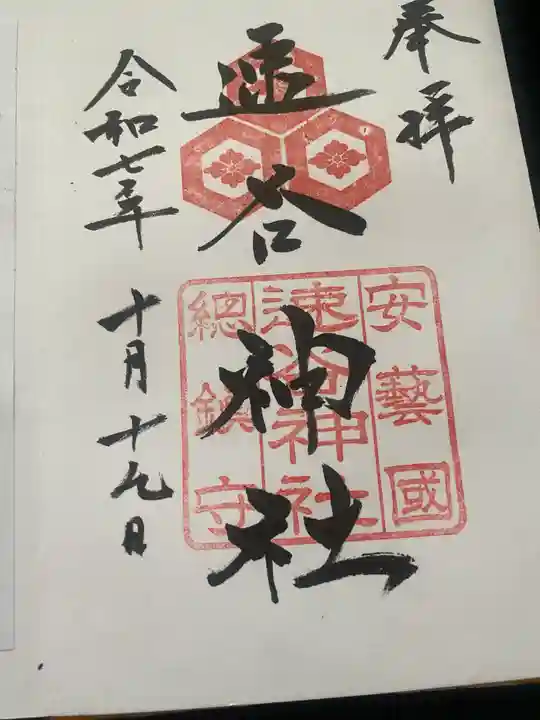 奉拝
速谷神社
安藝國
速谷神社
総鎮守
令和七年 十月十九日